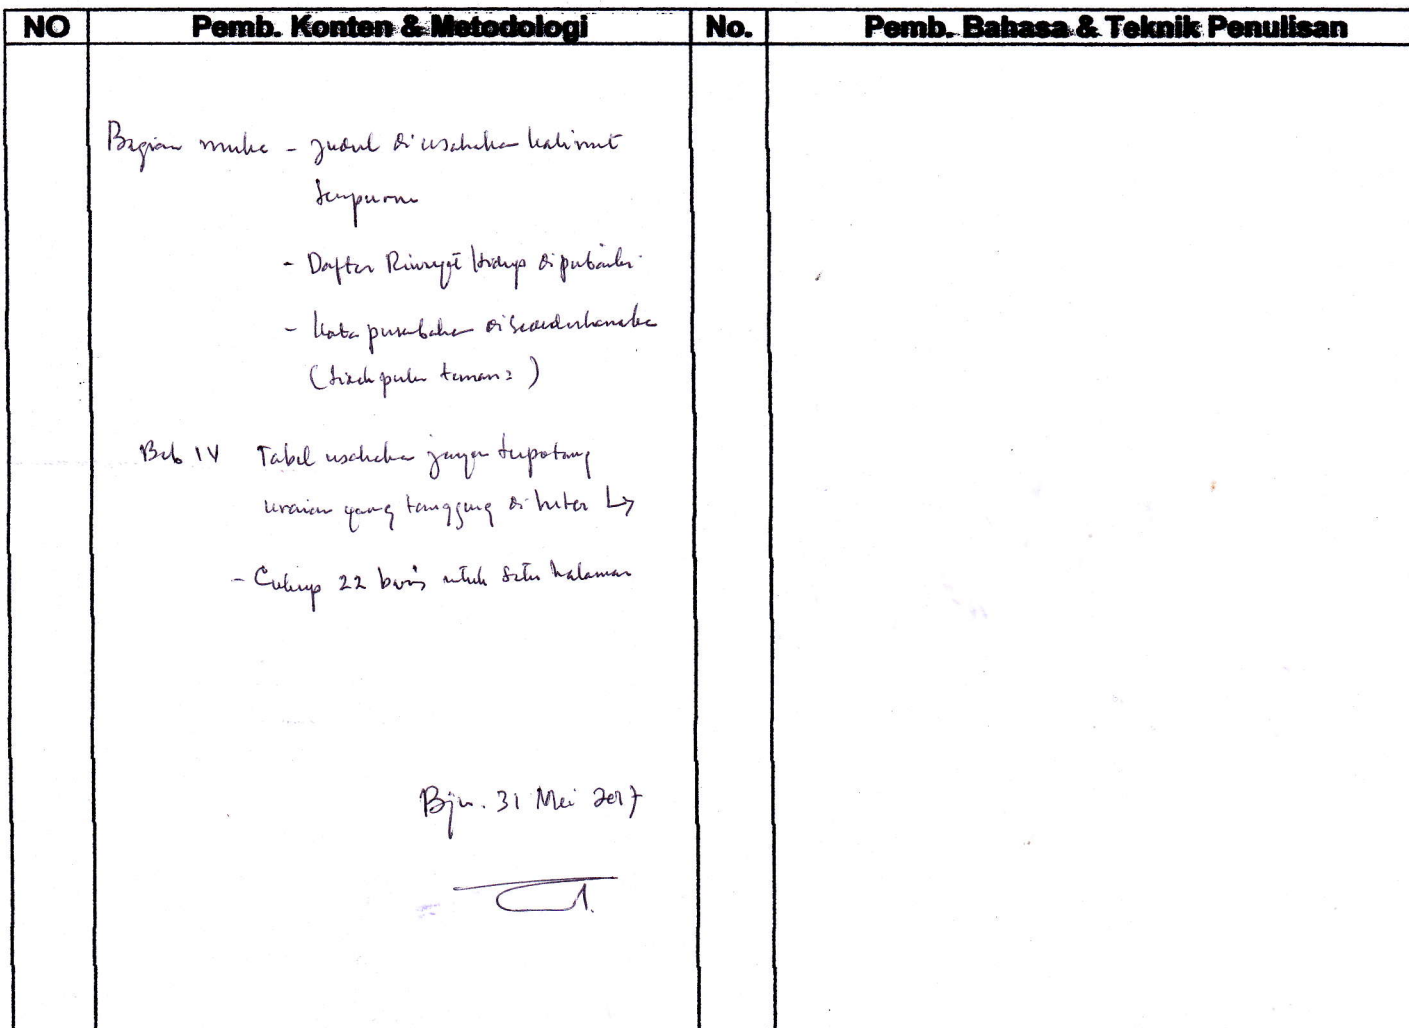 NO Pemb. Konten & Metodologi No. Pemb. Bahasa & Teknik Penulisan
Bagian muka - Judul diusahakan kalimat
Sempurna
- Daftar Riwayat Hidup diperbaiki
- Kata persembahan disederhanakan
(tidak perlu teman2)
Bab IV Tabel usahakan jangan terpotong
uraian yang tanggung di
- Cukup 22 baris untuk satu halaman
Bjn. 31 Mei 2017